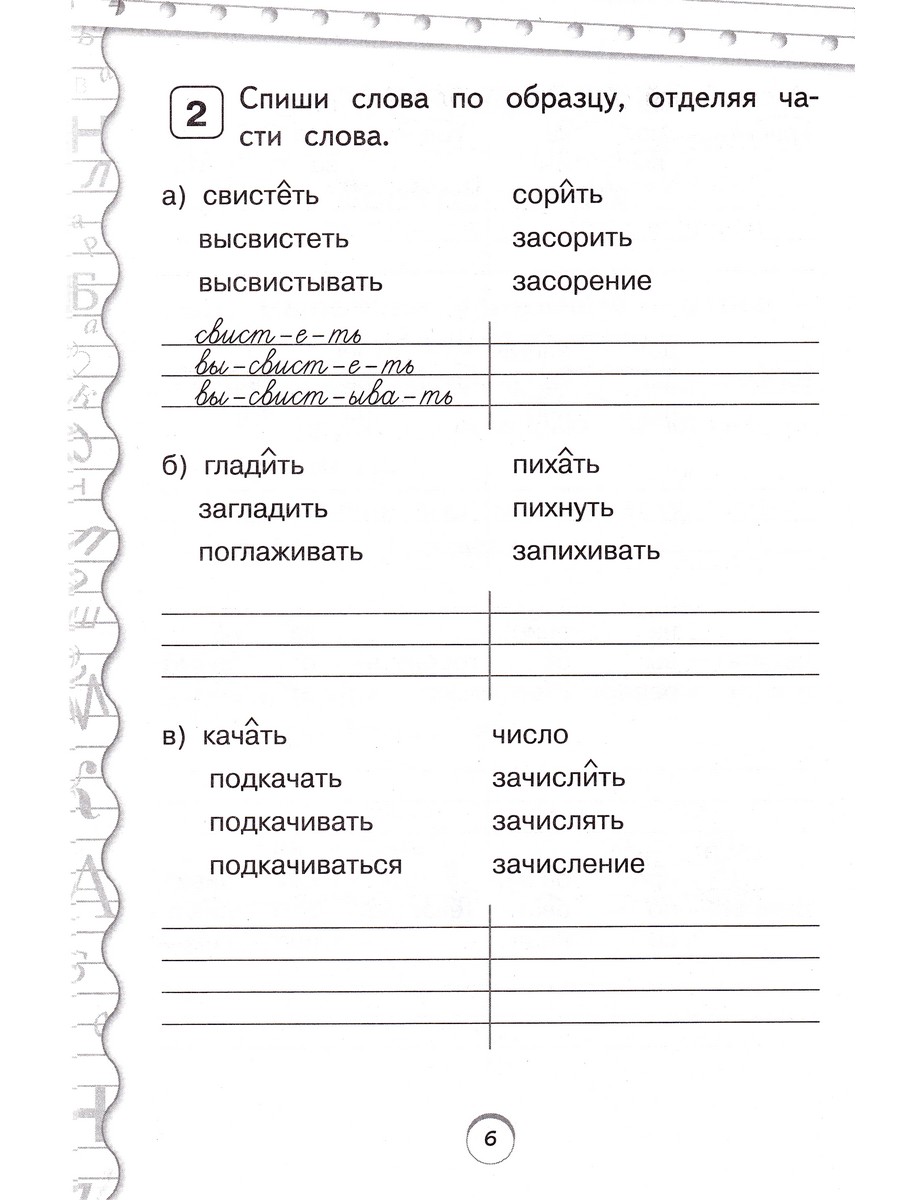 2 Спиши слова по образцу, отделяя ча-
сти слова.
а) свистеть сорить
высвистеть засорить
высвистывать засорение
свист – е – ть
вы – свист – е – ть
вы – свист – ыва – ть
б) гладить пихать
загладить пихнуть
поглаживать запихивать
в) качать число
подкачать зачислить
подкачивать зачислять
подкачиваться зачисление
6